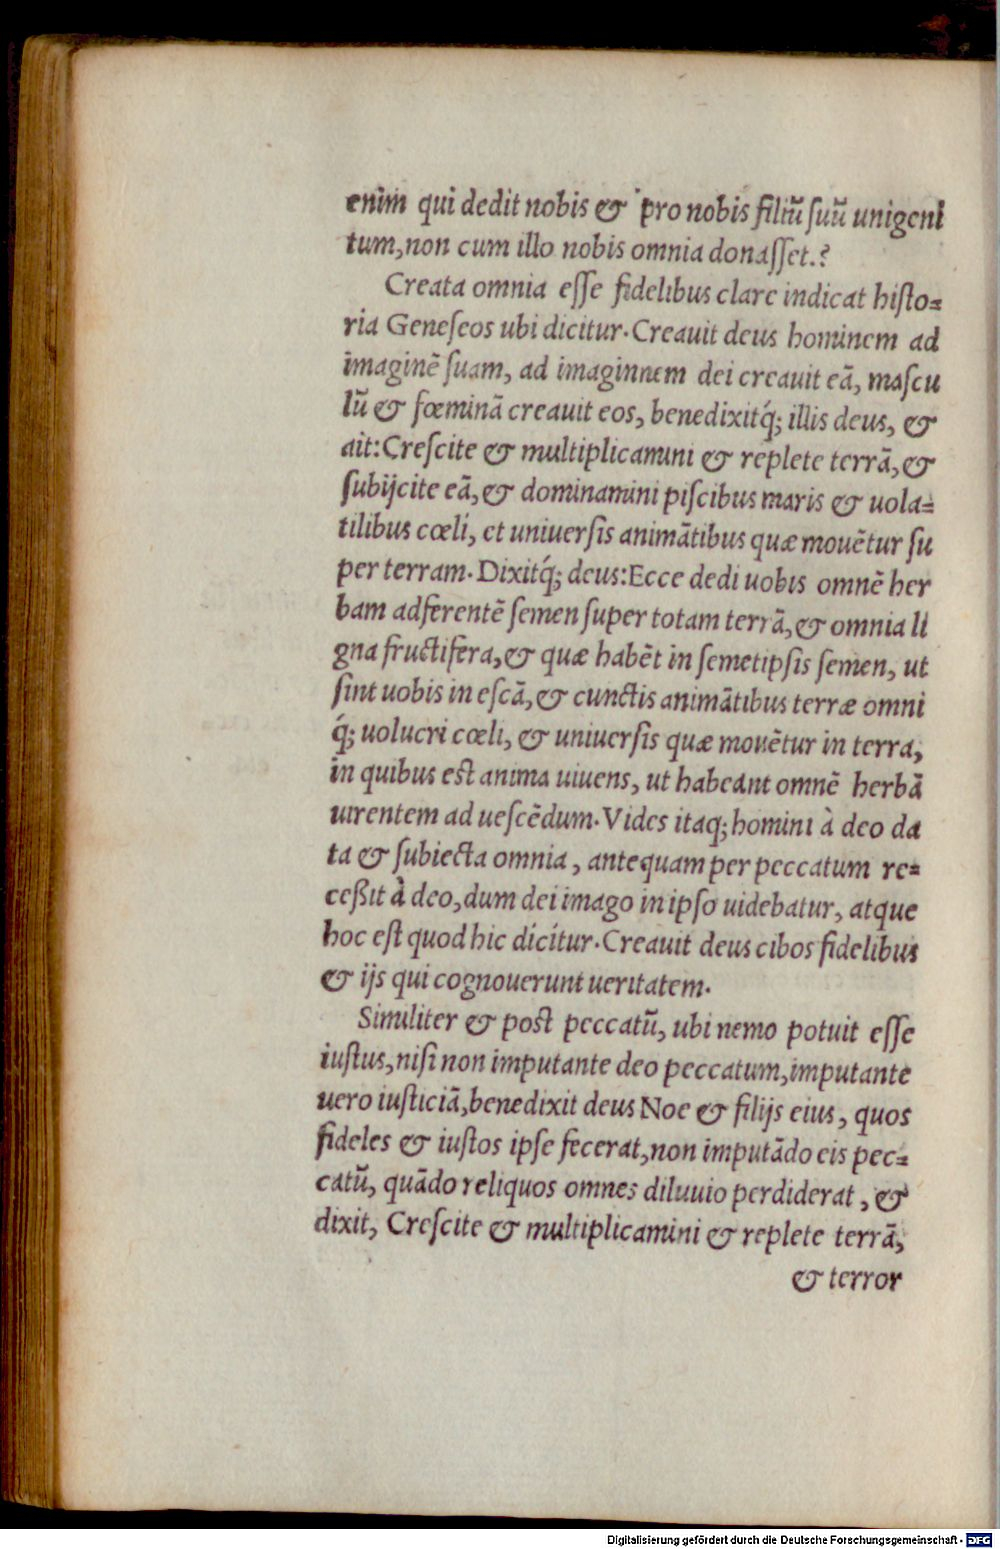 enim qui dedit nobis & pro nobis filiū ſuū unigeni
tum, non cum illo nobis omnia donaſſet.?
Creata omnia eſſe fidelibus clare indicat hiſto-
ria Geneſeos ubi dicitur. Creauit deus hominem ad
imaginē ſuam, ad imaginnem dei creauit eā, maſcu
lū & fœminā creauit eos, benedixitq́; illis deus, &
ait: Creſcite & multiplicamini & replete terrā, &
ſubijcite eā, & dominamini piſcibus maris & uola-
tilibus cœli, et uniuerſis animātibus quæ mouētur ſu
per terram. Dixitq́; deus: Ecce dedi uobis omnē her
bam adferentē ſemen ſuper totam terrā, & omnia li
gna fructifera, & quæ habēt in ſemetipſis ſemen, ut
ſint uobis in eſcā, & cunctis animātibus terræ omni
q́; uolucri cœli, & uniuerſis quæ mouētur in terra,
in quibus eſt anima uiuens, ut habeant omnē herbā
uirentem ad ueſcēdum. Vides itaq; homini à deo da
ta & ſubiecta omnia, antequam per peccatum re-
ceßit à deo, dum dei imago in ipſo uidebatur, atque
hoc eſt quod hic dicitur. Creauit deus cibos fidelibus
& ijs qui cognouerunt ueritatem.
Similiter & poſt peccatū, ubi nemo potuit eſſe
iuſtus, niſi non imputante deo peccatum, imputante
uero iuſticiā, benedixit deus Noe & filijs eius, quos
fideles & iuſtos ipſe fecerat, non imputādo eis pec-
catū, quādo reliquos omnes diluuio perdiderat, &
dixit, Creſcite & multiplicamini & replete terrā,
& terror
Digitalisierung gefördert durch die Deutsche Forschungsgemeinschaft - DFG